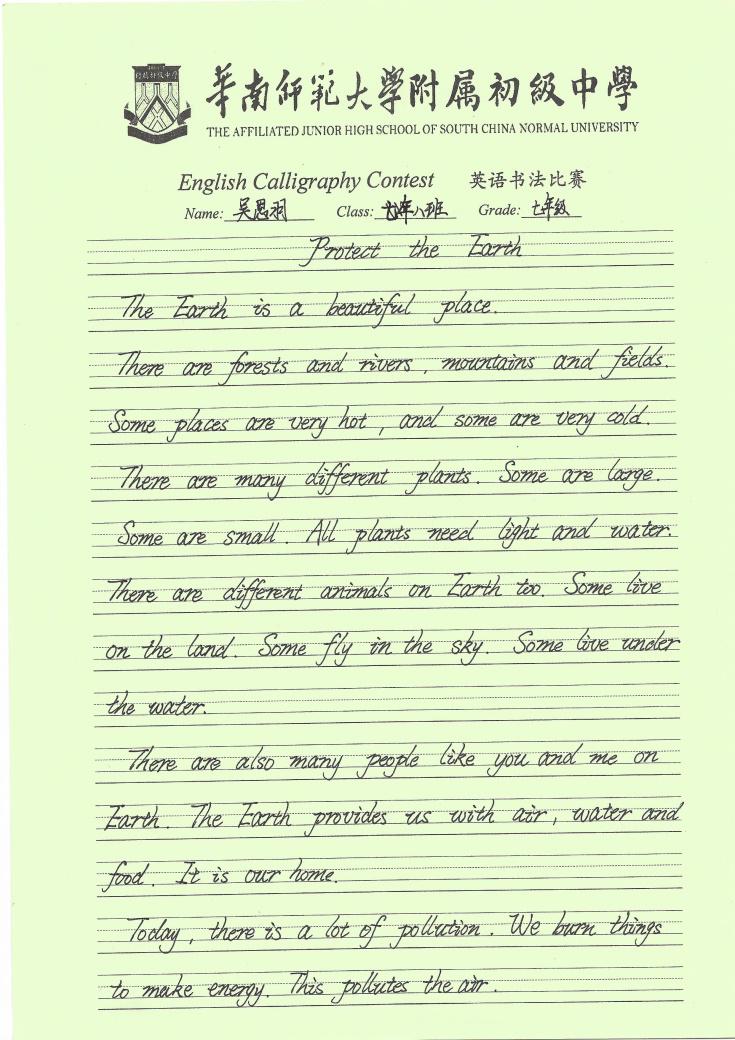 華南師範大學附属初級中學
THE AFFILIATED JUNIOR HIGH SCHOOL OF SOUTH CHINA NORMAL UNIVERSITY
English Calligraphy Contest 英语书法比赛
Name: 吴恩羽 Class: 八班 Grade: 七年级
Protect the Earth
The Earth is a beautiful place.
There are forests and rivers, mountains and fields.
Some places are very hot, and some are very cold.
There are many different plants. Some are large.
Some are small. All plants need light and water.
There are different animals on Earth too. Some live
on the land. Some fly in the sky. Some live under
the water.
There are also many people like you and me on
Earth. The Earth provides us with air, water and
food. It is our home.
Today, there is a lot of pollution. We burn things
to make energy. This pollutes the air.